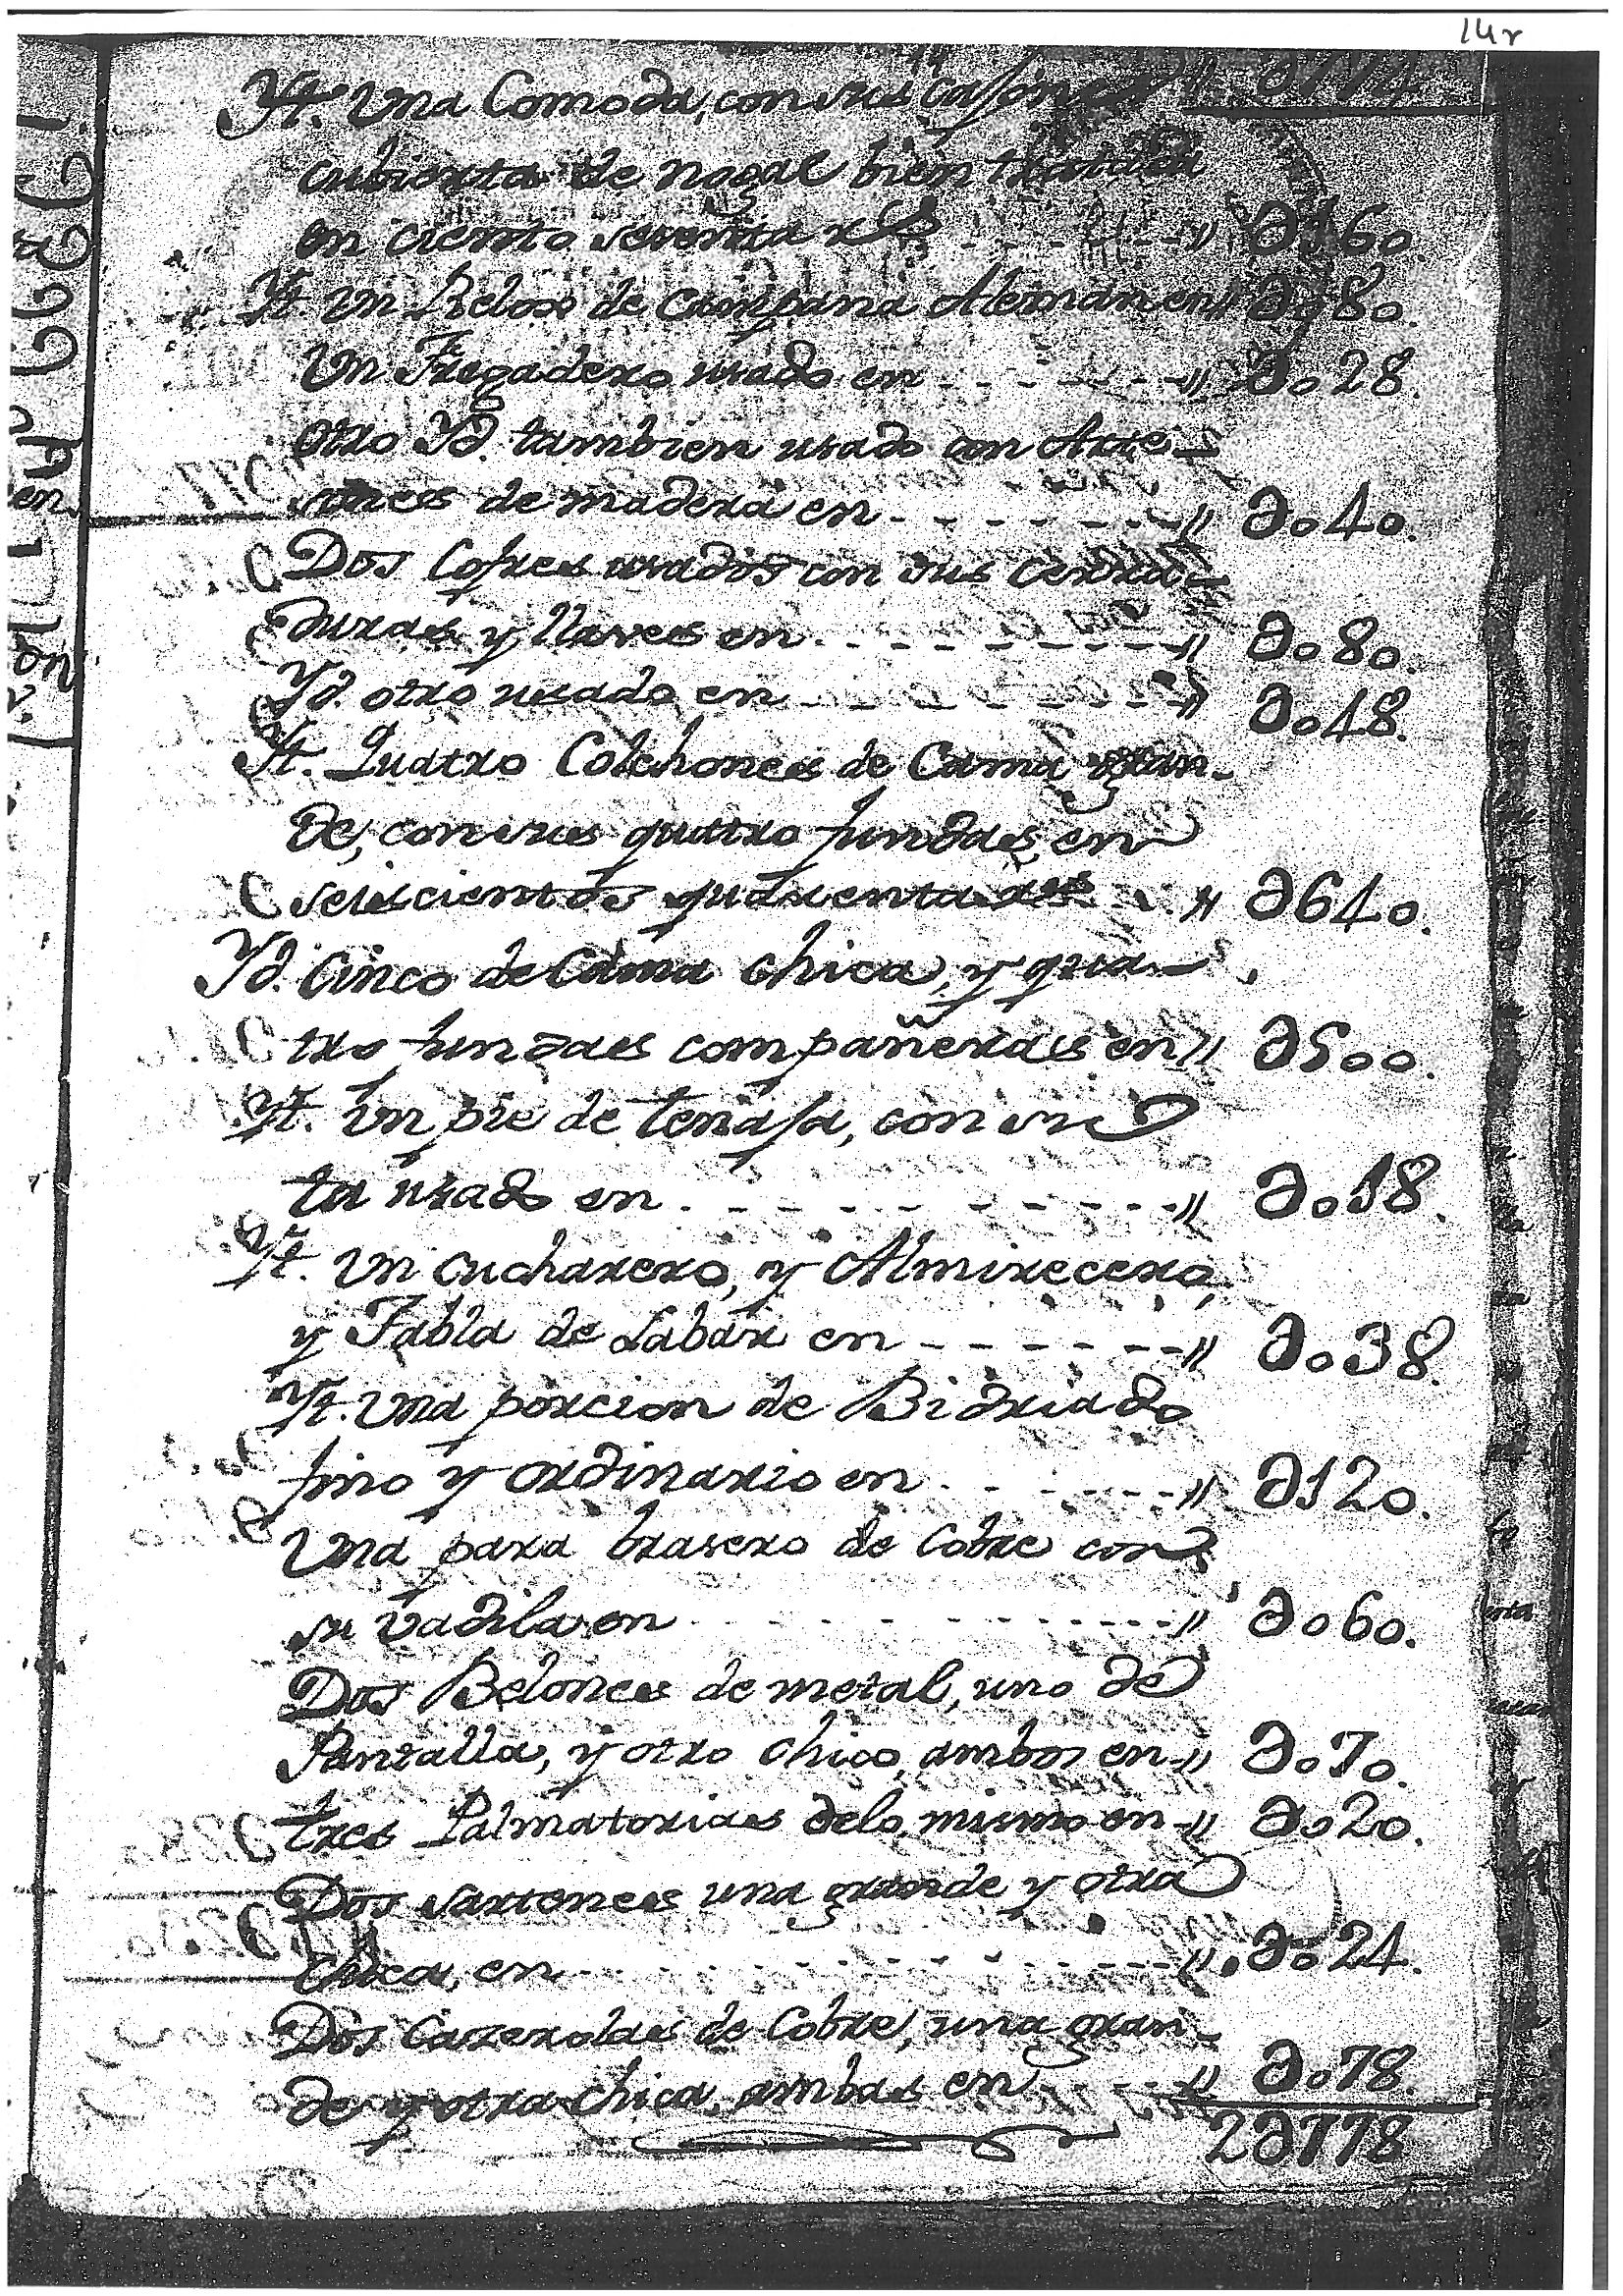 14r
Yt. Una Comoda, con sus cajones " ∂774
cubierta de nogal bien tratada
en ciento sesenta rs - - - - " ∂160.
Yt. un Relox de Campana Aleman en " ∂980.
Un Fregadero usado en - - - - - " ∂o28.
otro Yd. tambien usado con
de madera en - - - - - - - " ∂o40.
Dos Cofres usados con sus cerra=
duras y llaves en - - - - - - - " ∂o80.
Yd. otro usado en - - - - - - - " ∂o48.
Yt. Quatro Colchones de Cama gran-
de, con sus quatro fundas, en
seiscientos quarenta rs - - " ∂640.
Yd. Cinco de Cama chica, y qua-
tro fundas compañeras en " ∂500.
Yt. un pie de tenaja, con su
ta usado en - - - - - - - - - - " ∂o18.
Yt. un cucharero, y Almirecero,
y Tabla de Labar en - - - - - - " ∂o38.
Yt. Una porcion de Bidriado
fino y ordinario en - - - - - - " ∂120.
Una para brasero de Cobre con
su vadila en - - - - - - - - - " ∂o60.
Dos Belones de metal, uno de
Pantalla, y otro chico, ambos en - " ∂o70.
tres Palmatorias delo mismo en - " ∂o20.
Dos sartenes una grande y otra
Chica, en - - - - - - - - - - - " ∂o24.
Dos Cazerolas de Cobre, una gran-
de y otra chica, ambas en - - - " ∂o78.
2∂778